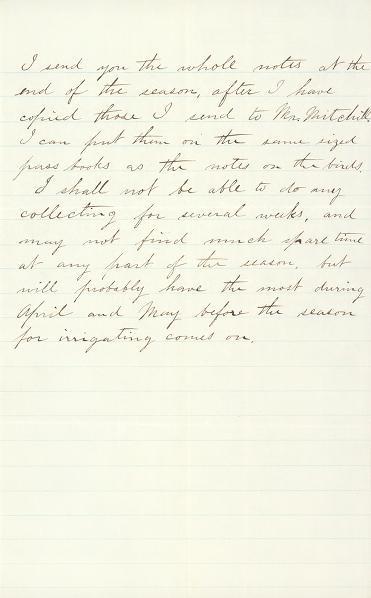 I send you the whole notes at the
end of the season, after I have
copied those I send to Mr. Mitchill.
I can put them on the same sized
pass books as the notes on the birds.
I shall not be able to do any
collecting for several weeks, and
may not find much spare time
at any part of the season, but
will probably have the most during
April and May before the season
for irrigating comes on.